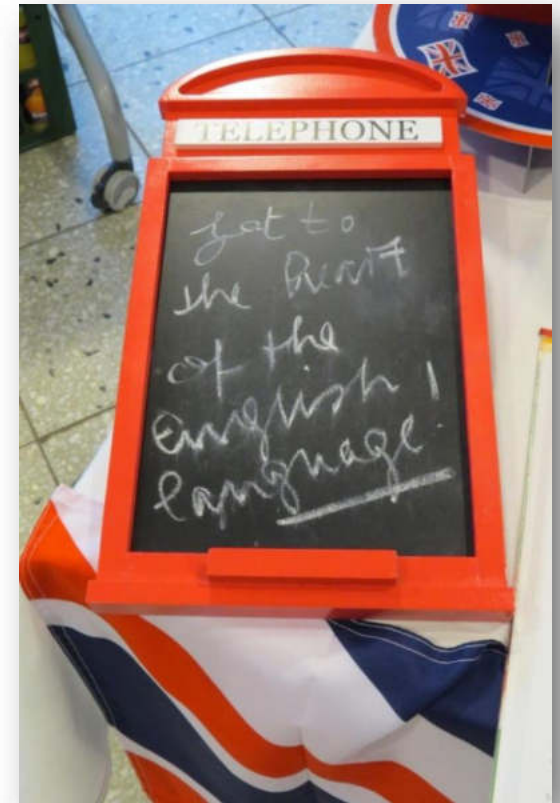 TELEPHONE
get to
the heart
of the
english !
language.